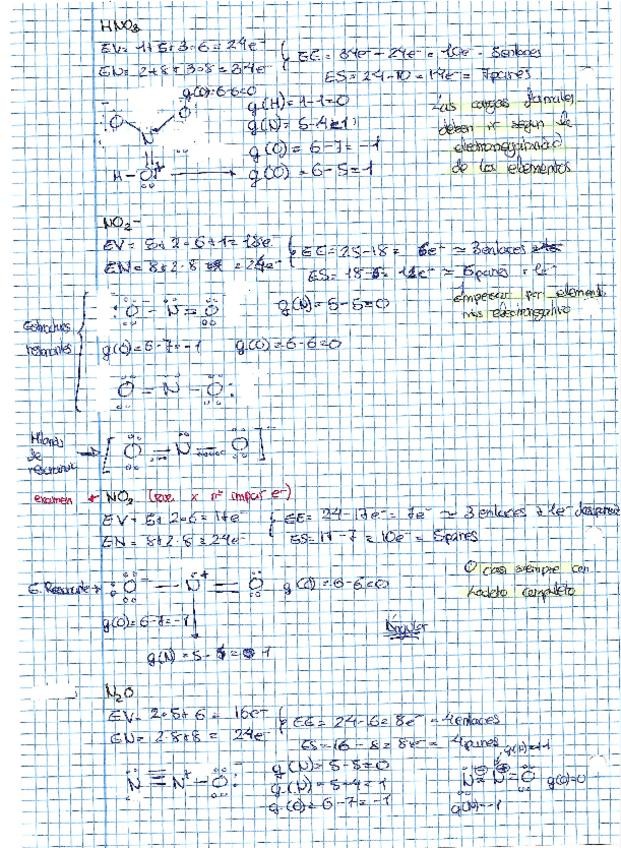 HNO3
EV= 1+5+3·6=24e-
EE= 34e- - 24e- = 10e- - 5enlaces
EN= 2+8+3·8=34e-
ES=24-10=14e-= 7pares
g(O)=6-6=0
g(H)=1-1=0
g(N)=5-4=1
g(O)=6-7=-1
H-O+
g(O)=6-5=1
Las cargas formales
deben ir según la
electronegatividad
de los elementos
NO2-
EV=5+2·6+1=18e-
EN=8+2·8=24e-
6e- = 3enlaces
empezar por elemento
más electronegativo
Estructuras
resonantes
O - N = O
g(N)=5-5=0
g(O)=6-7=-1
g(O)=6-6=0
O = N - O:
Híbrido
de
resonancia
[O N O]-
examen * NO2 (rad. x nº impar e-)
EV=5+2·6=17e-
EE= 24-17e-=7e- ≈ 3enlaces + 1e- desapareado
EN=8+2·8=24e-
ES=17-7=10e-= 5pares
E. Resonante → :O- - N+ = O
g(O)=6-6=0
O casi siempre con
octeto completo
g(O)=6-7=-1
Angular
N2O
EV= 2·5+6= 16e-
EE= 24-16=8e- = 4enlaces
EN= 2·8+8= 24e-
ES=16-8=8e- = 4pares
N ≡ N+ - O:-
g(N)=5-5=0
g(N)=5-4=1
g(O)=6-7=-1
g(N)=+1
N = N = O
g(O)=0
g(N)=-1